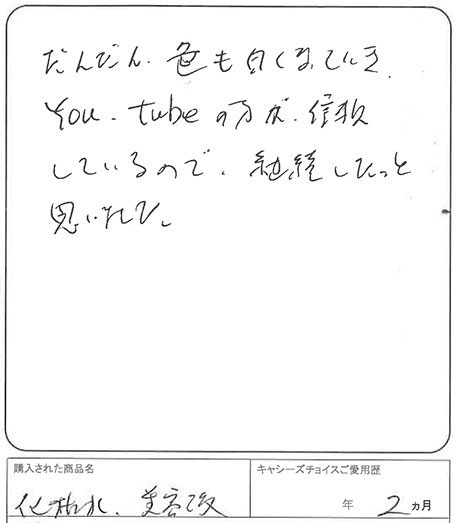 だんだん、色も白くなっていき、
You・tubeの方が、信頼
しているので、継続したいと
思いました。
購入された商品名
キャシーズチョイスご愛用歴
化粧水、美容液
年 2 ヵ月